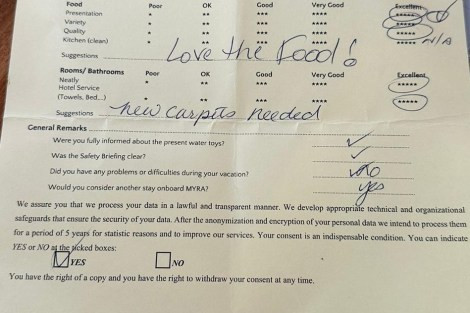 Food Poor OK Good Very Good Excellent
Presentation * ** *** **** *****
Variety * ** *** **** *****
Quality * ** *** **** *****
Kitchen (clean) * ** *** **** ***** N/A
Suggestions Love the Food!
Rooms/ Bathrooms Poor OK Good Very Good Excellent
Neatly * ** *** **** *****
Hotel Service
(Towels, Bed,..) * ** *** **** *****
Suggestions new carpits needed
General Remarks
Were you fully informed about the present water toys? ✓
Was the Safety Briefing clear? ✓
Did you have any problems or difficulties during your vacation? NO
Would you consider another stay onboard MYRA? yes
We assure you that we process your data in a lawful and transparent manner. We develop appropriate technical and organizational
safeguards that ensure the security of your data. After the anonymization and encryption of your personal data we intend to process them
for a period of 5 years for statistic reasons and to improve our services. Your consent is an indispensable condition. You can indicate
YES or NO at the ticked boxes:
☑ YES ☐ NO
You have the right of a copy and you have the right to withdraw your consent at any time.